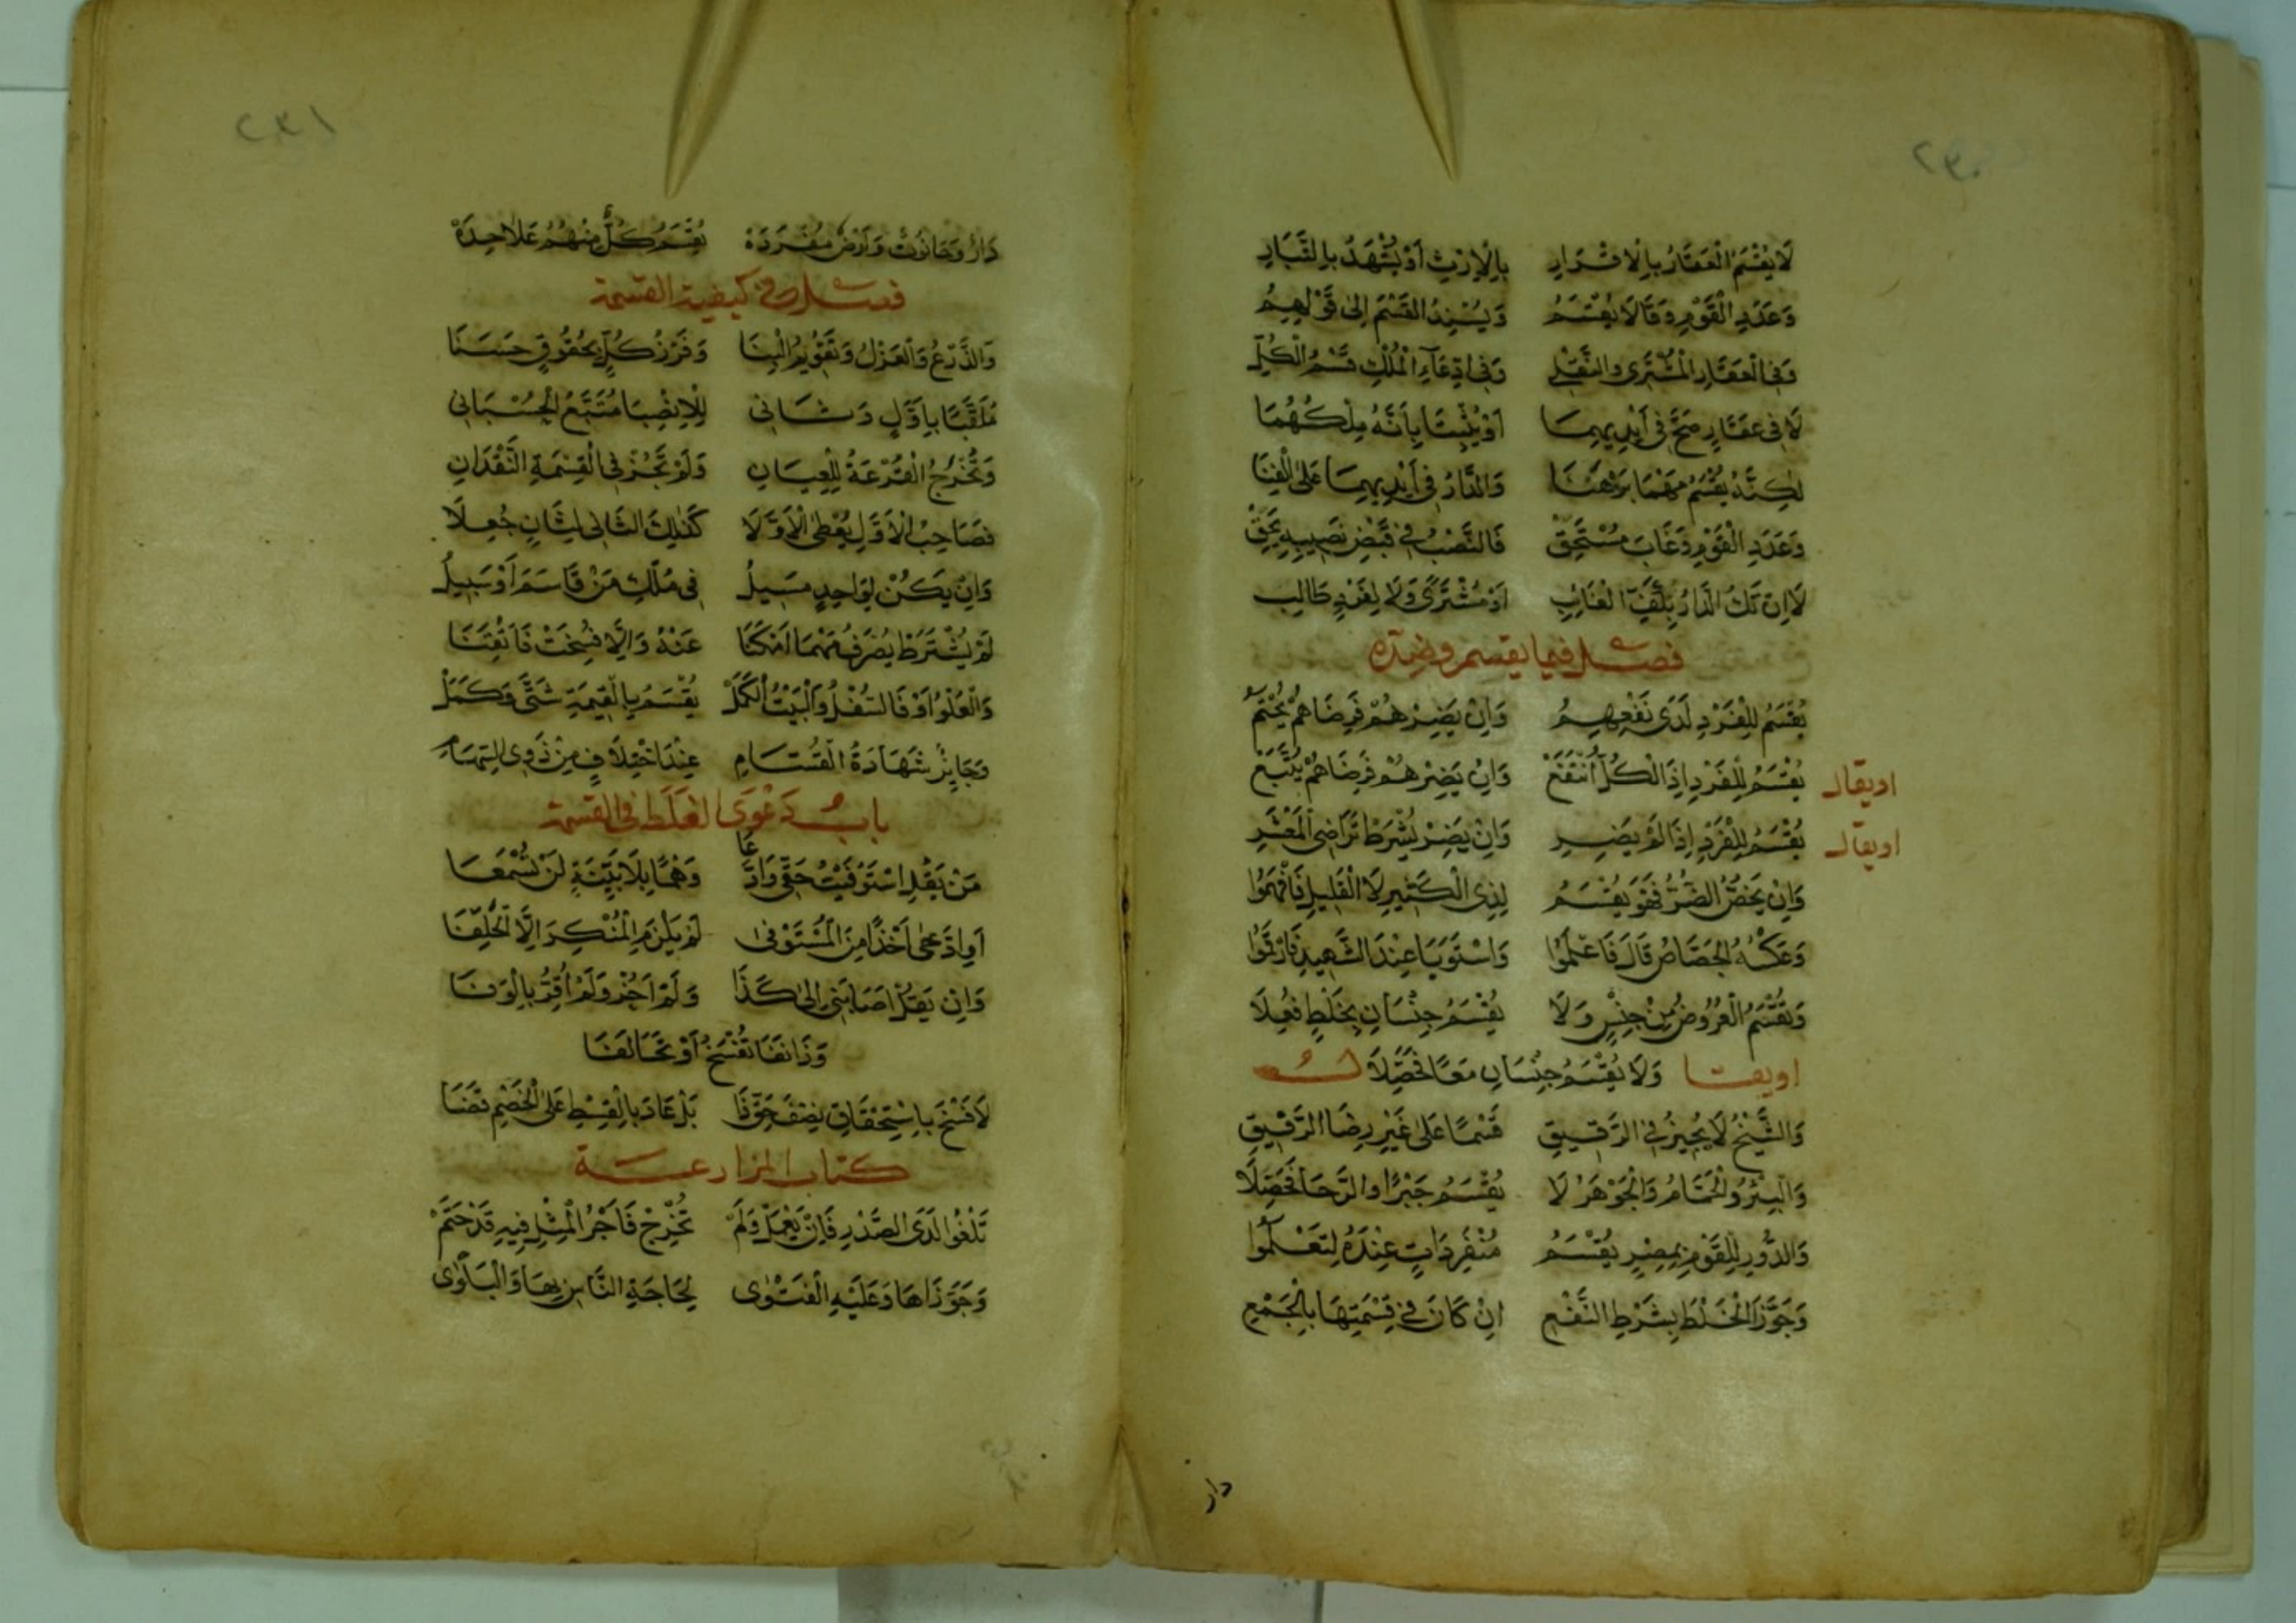 ٢٣٠
لَا يُقْسَمُ الْعَقَارُ بِالْاقْرَارِ بِالْاِرْثِ اَوْ يُشْهَدُ بِالتَّبَارِ
وَعَدَدِ الْقَوْمِ وَقَالَا يُقْسَمُ وَيُسْنِدُ الْقَسْمَ اِلىٰ قَوْلِهِمُ
وَفِي الْعَقَارِ الْمُشْتَرٰى وَالنَّقْلِ وَفِي ادِّعَآءِ الْمُلْكِ قَسْمُ الْكُلِّ
لَا فِي عَقَارٍ صَحَّ فِي اَيْدِيهِمَا اَوْ يُثْبِتَا بِاَنَّهُ مِلْكُهُمَا
لٰكِنَّهُ يُقْسَمُ مَهْمَا بَرْهَنَا وَالدَّارُ فِي اَيْدِيهِمَا عَلَى
وَعَدَدِ الْقَوْمِ وَغَابَ مُسْتَحِقّْ فَالنَّصْبُ فِي قَبْضِ نَصِيبِهِ يَحِقّْ
لَا اِنْ تَكُ الدَّارُ بِكَفِّ الْغَائِبِ اَوْ مُشْتَرًى وَلَا لِفَرْدٍ طَالِبِ
فصل فيما يقسم وضده
يُقْسَمُ لِلْفَرْدِ لَدَى نَفْعِهِمُ وَاِنْ يَضِرْهُمْ فَرِضَاهُمْ يُحْتَمُ
اويقال يُقْسَمُ لِلْفَرْدِ اِذَا الْكُلُّ انْتَفَعْ وَاِنْ يَضِرْهُمْ فَرِضَاهُمْ يُتَّبَعْ
اويقال يُقْسَمُ لِلْفَرْدِ اِذَا لَمْ يَضِرِ وَاِنْ يَضِرْ يُشْرَطْ تَرَاضِي الْمَعْشَرِ
وَاِنْ يَخُصَّ الضُّرُّ فَهْوَ يُقْسَمُ لِذِي الْكَثِيرِ لَا الْقَلِيلِ فَافْهَمُوا
وَعَكْسُهُ الْجَصَّاصُ قَالَ فَاعْلَمُوا وَاسْتَوَيَا عِنْدَ الشَّهِيدِ فَارْقُمُوا
وَتُقْسَمُ الْعُرُوضُ مِنْ جِنْسٍ وَلَا يُقْسَمُ جِنْسَانِ بِخَلْطٍ فُعِلَا
اويقـا وَلَا يُقْسَمُ جِنْسَانِ مَعًا فَحَصِّلَا
وَالشَّيْخُ لَا يُجِيزُ فِي الرَّقِيقِ قَسْمًا عَلَى غَيْرِ رِضَا الرَّفِيقِ
وَالْبِئْرُ وَالْحَمَّامُ وَالْجَوْهَرُ لَا يُقْسَمُ جَبْرًا وَالرَّحَا فَحَصِّلَا
وَالدُّورِ لِلْقَوْمِ بِمِصْرٍ يُقْسَمُ مُنْفَرِدَاتٍ عِنْدَهُ لِتَعْلَمُوا
وَجَوَّزَا الْخَلْطَ بِشَرْطِ النَّفْعِ اِنْ كَانَ فِي قِسْمَتِهَا بِالْجَمْعِ
دار
٢٣١
دَارُ وَحَانُوتٌ وَاَرْضٌ مُفْرَدَهْ يُقْسَمُ كُلٌّ مِنْهُمُ عَلَا حِدَهْ
فصل في كيفية القسمة
وَالذَّرْعُ وَالْعَزْلُ وَتَقْوِيمُ الْبِنَا وَفَرْزُ كُلٍّ بِحُقُوقٍ حَسَنَا
مُلَقَّبًا بِاَوَّلٍ وَثَانِي لِلْاِنْصِبَا مُتَّبَعُ الْحُسْبَانِ
وَتُخْرَجُ الْقُرْعَةُ لِلْعِيَانِ وَلَمْ تَجُزْ فِي الْقِسْمَةِ النَّقْدَانِ
فَصَاحِبُ الْاَوَّلِ يُعْطَى الْاَوَّلَا كَذٰلِكَ الثَّانِي لِثَانٍ جُعِلَا
وَاِنْ يَكُنْ لِوَاحِدٍ مَسِيلُ فِي مُلْكِ مَنْ قَاسَمَ اَوْ سَبِيلُ
لَمْ يُشْتَرَطْ يُصْرَفُ مَهْمَا اَمْكَنَا عَنْهُ وَاِلَّا فُسِخَتْ فَاَتْقِنَا
وَالْعُلْوُ اَوْ فَالسُّفْلُ وَالْبَيْتُ الْكَمَلْ يُقْسَمُ بِالْقِيمَةِ شَتَّى وَكَمَلْ
وَجَايِزٌ شَهَادَةُ الْقُسَّامِ عِنْدَ اخْتِلَافٍ مِنْ ذَوِي السِّهَامِ
باب دَعْوَى الغَلَطِ في القسمة
مَنْ يَقُلِ اسْتَوْفَيْتُ حَقِّي وَادَّعَا وَهْمًا بِلَا بَيِّنَةٍ لَنْ تُسْمَعَا
اَوِ ادَّعَى اَخْذًا مِنَ الْمُسْتَوْفٰى لَمْ يَلْزَمِ الْمُنْكِرَ اِلَّا الْحَلِفَا
وَاِنْ يَقُلْ اَصَابَنِي اِلىٰ كَذَا وَلَمْ اَحُزْ وَلَمْ اُقِرَّ بِالْوَفَا
وَذَا نَفَا تُفْسَخُ اَوْ تَحَالَفَا
لَا فَسْخَ بِاسْتِحْقَاقِ نِصْفَ بَلْ عَادَ بِالْقِسْطِ عَلَى الْخَصْمِ قَضَا
كتاب المزارعة
تَلْغُوا لَدَى الصَّدْرِ فَاِنْ يَعْمَلْ وَلَمْ تُخْرِجْ فَاَجْرُ الْمِثْلِ فِيهِ قَدْ حَتَمْ
وَجَوَّزَاهَا وَعَلَيْهِ الْفَتْوٰى لِحَاجَةِ النَّاسِ بِهَا وَالْبَلْوٰى